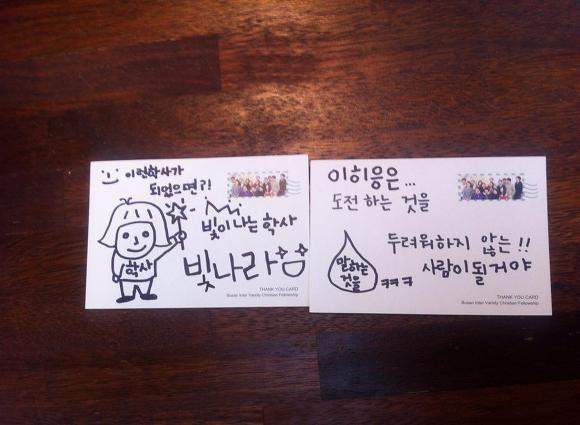 이런학사가
되었으면?!
빛이 나는 학사
빛나라
학사
THANK YOU CARD
Busan Inter Varsity Christian Fellowship
이히응은...
도전 하는 것을
두려워하지 않는!!
사람이 될거야
말하는
것을
ㅋㅋㅋ
THANK YOU CARD
Busan Inter Varsity Christian Fellowship